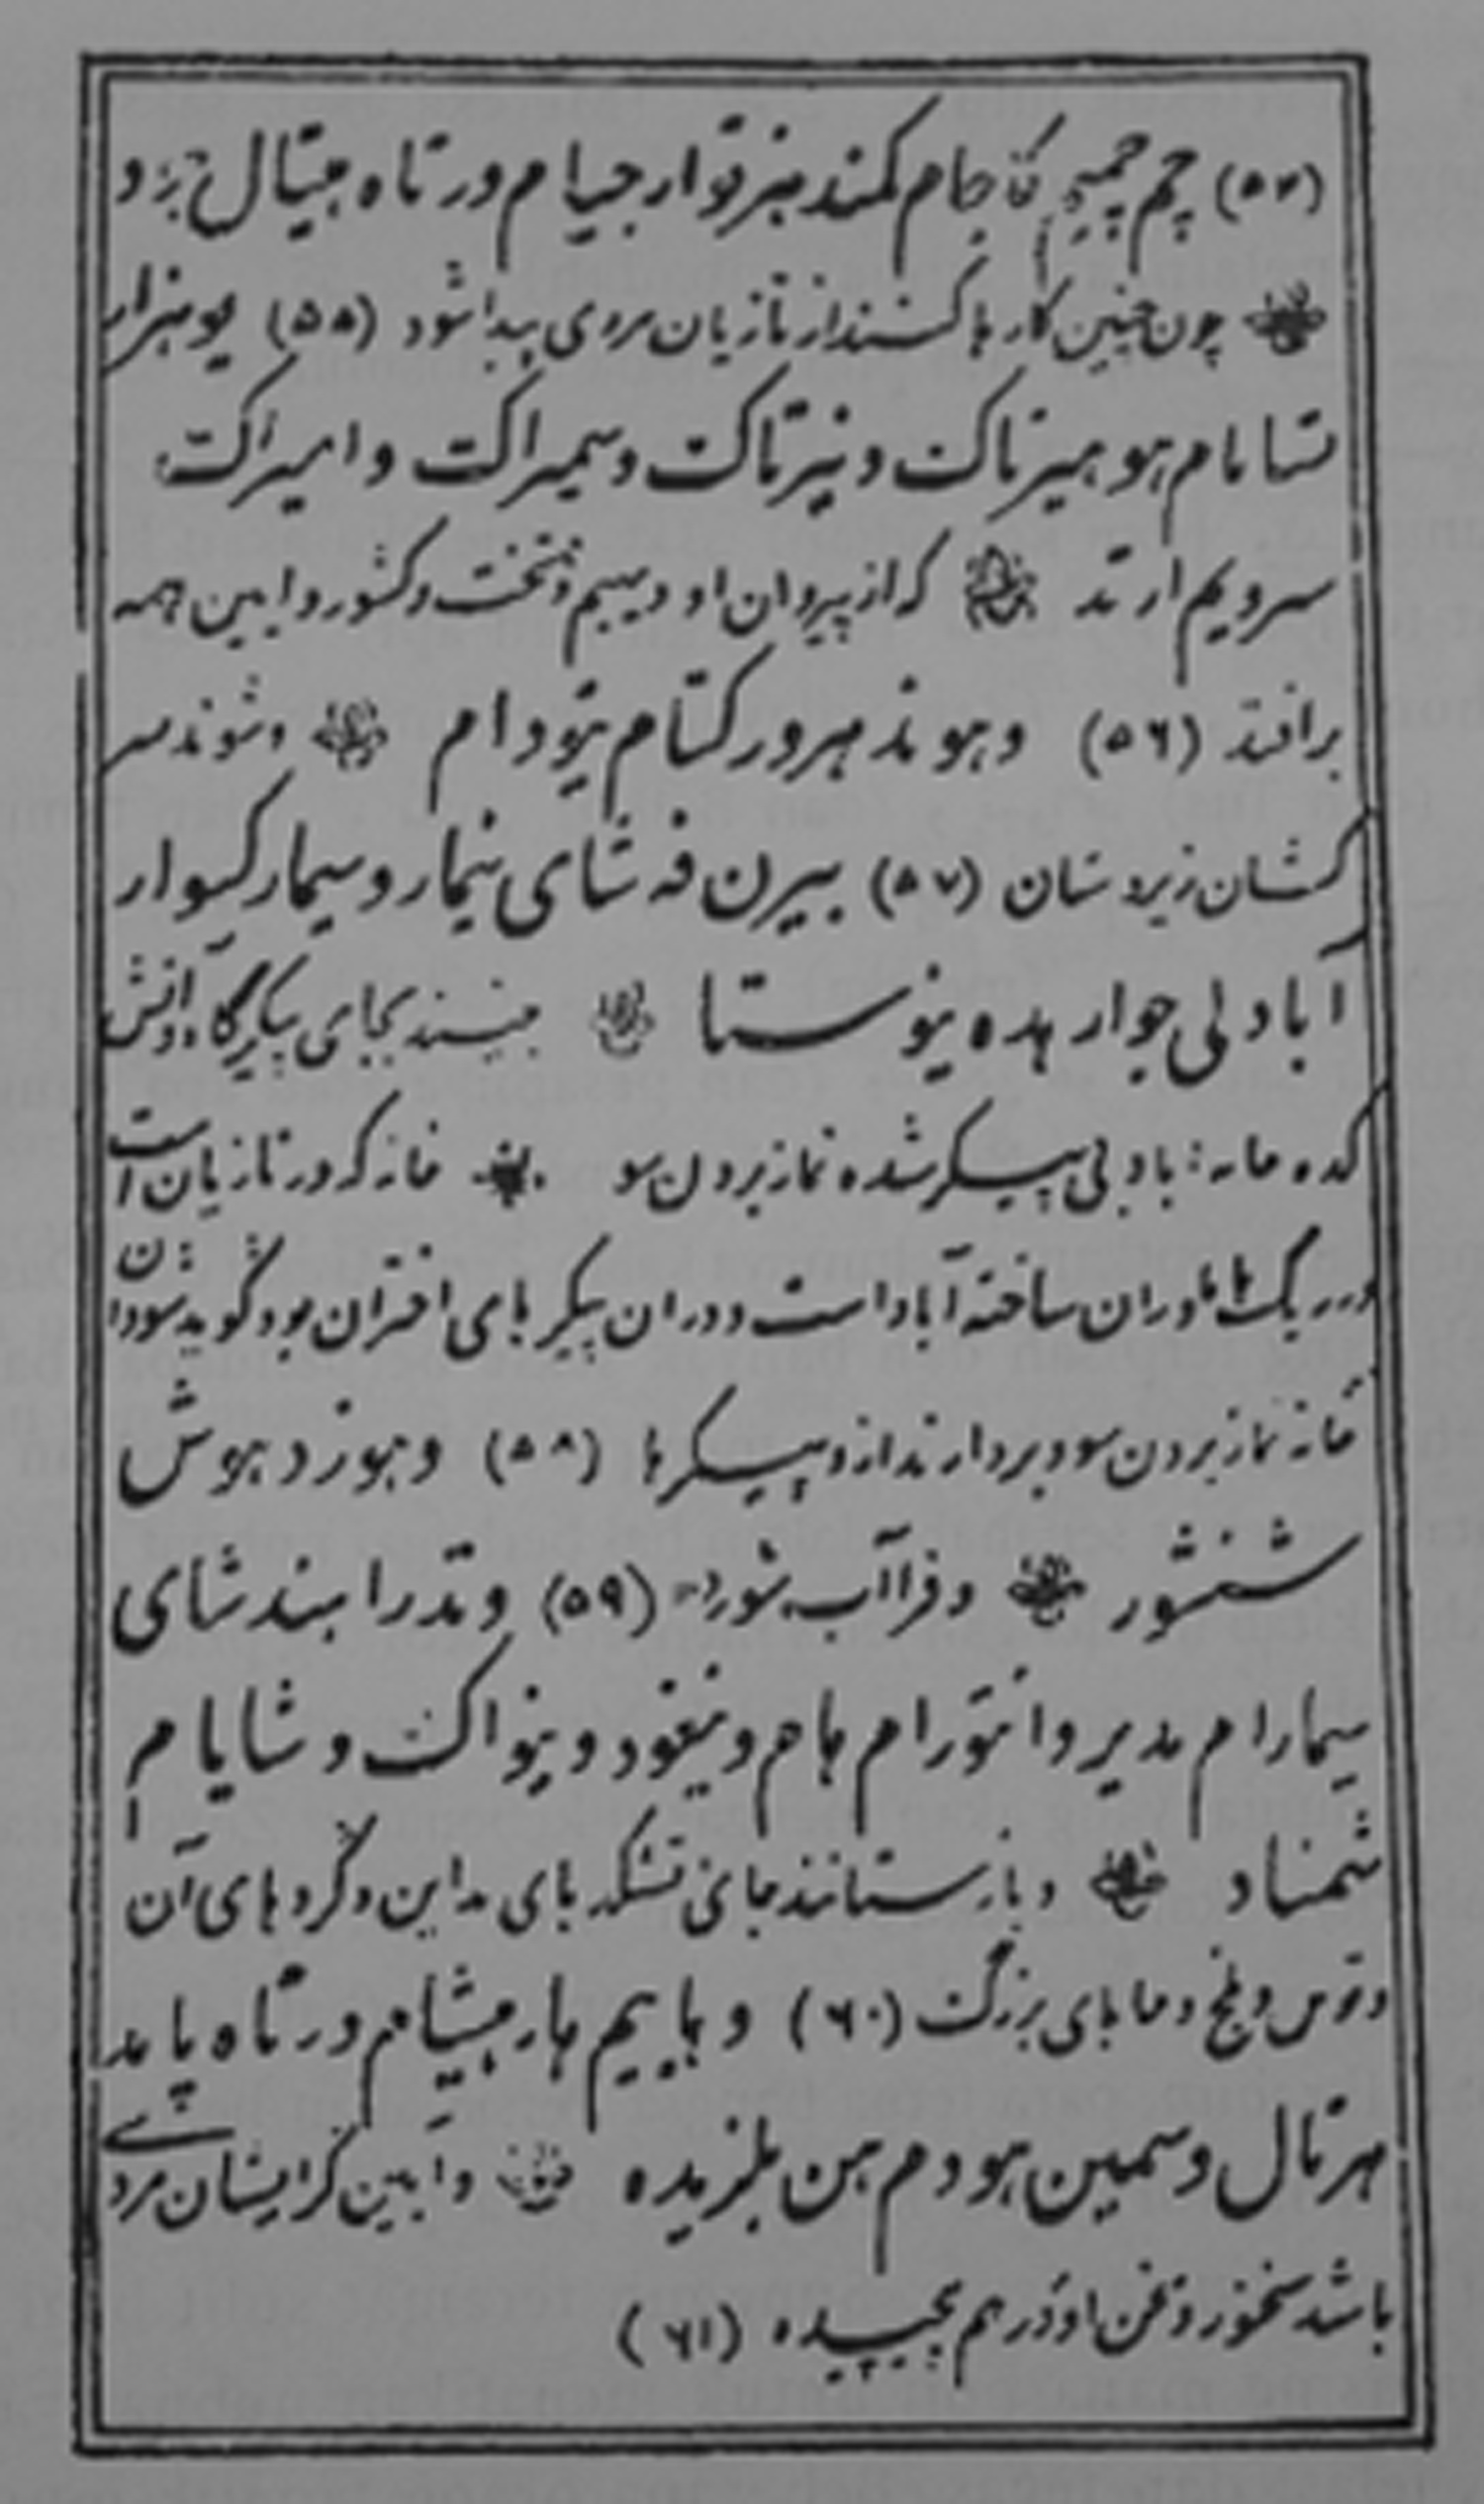 (۵۴) چم چمیم کاچام کمند هنرتوار جیام ورتاه هیتال رزد
چون چنین کارها کنند از تازیان مردی پیدا شود (۵۵) یو هزار
تسانام هو هیرتاک و نیرتاک و سمیراکت و امیراکت
سرویم ارتد که از پیروان او دیهیم و تخت و کشور و آیین همه
برافتد (۵۶) و هوند هرور کتام تیودام و شوند سر
کشان زیردستان (۵۷) بیرن فه شای نیمار و سیمار کسوار
آباد لی جوار هده نیوستا بینند بجای پیکرگاه و آتش
کده خانه آباد بی پیکر شده نماز بردن سو خانه که در تازیان است
در ریگ هاوران ساخته آباد است و دران پیکرهای اختران بود گوید شود آن
خانه نماز بردن سو و بردارند ازو پیکرها (۵۸) و هوزد هوش
شنشور و فراآب شورد (۵۹) و تدرا هند شای
سیمارام مدیر و انتورام هام و نیفود و نیواک و شایام
شمناد و باز ستانند جای آتشکدهای مداین و گردهای آن
و توس و بلخ و جاهای بزرگ (۶۰) و هاییم هار هیشام ورتاه پاید
هرتال و سمین هودم هن بلزیده و آیین گر ایشان مردی
باشد سخنور و سخن او درهم پیچیده (۶۱)